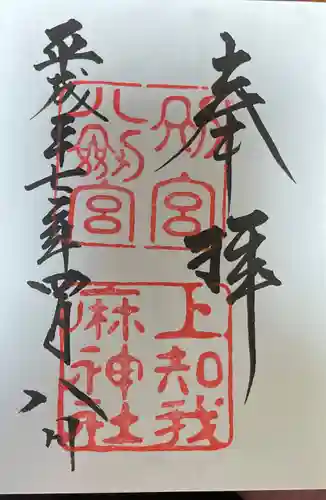 奉拝
別宮
八剱宮
上知我
麻神社
平成二十七年四月八日